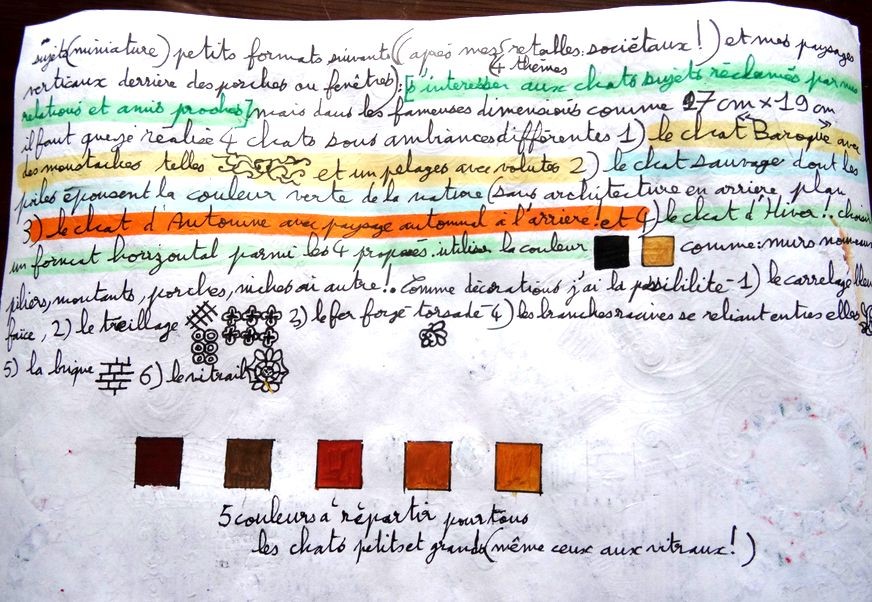 sujets (miniature) petits formats suivants ( (après mes retables: sociétaux!) et mes paysages
4 thèmes
verticaux derrière des porches ou fenêtres): [s'interesser aux chats sujets réclamés par mes
relations et amis proches] mais dans les fameuses dimensions comme 27cm x 19 cm
il faut que je réalise 4 chats sous ambiances différentes 1) le chat "Baroque" avec
des moustaches telles et un pelages avec volutes 2) le chat sauvage dont les
poiles épousent la couleur verte de la nature (sans architecture en arrière plan
3) le chat d'Automne avec paysage automnal à l'arrière! et 4) le chat d'Hiver!..
un format horizontal parmi les 4 proposés. utiliser la couleur comme: murs
piliers, montants, porches, niches ou autre!.. Comme décorations j'ai la possibilité - 1) le carrelage
faïce, 2) le treillage 3) le fer forgé torsadé - 4) les branches racines se reliant entres elles
5) la brique 6) le vitrail
5 couleurs à répartir pour tous
les chats petits et grands (même ceux aux vitraux!)